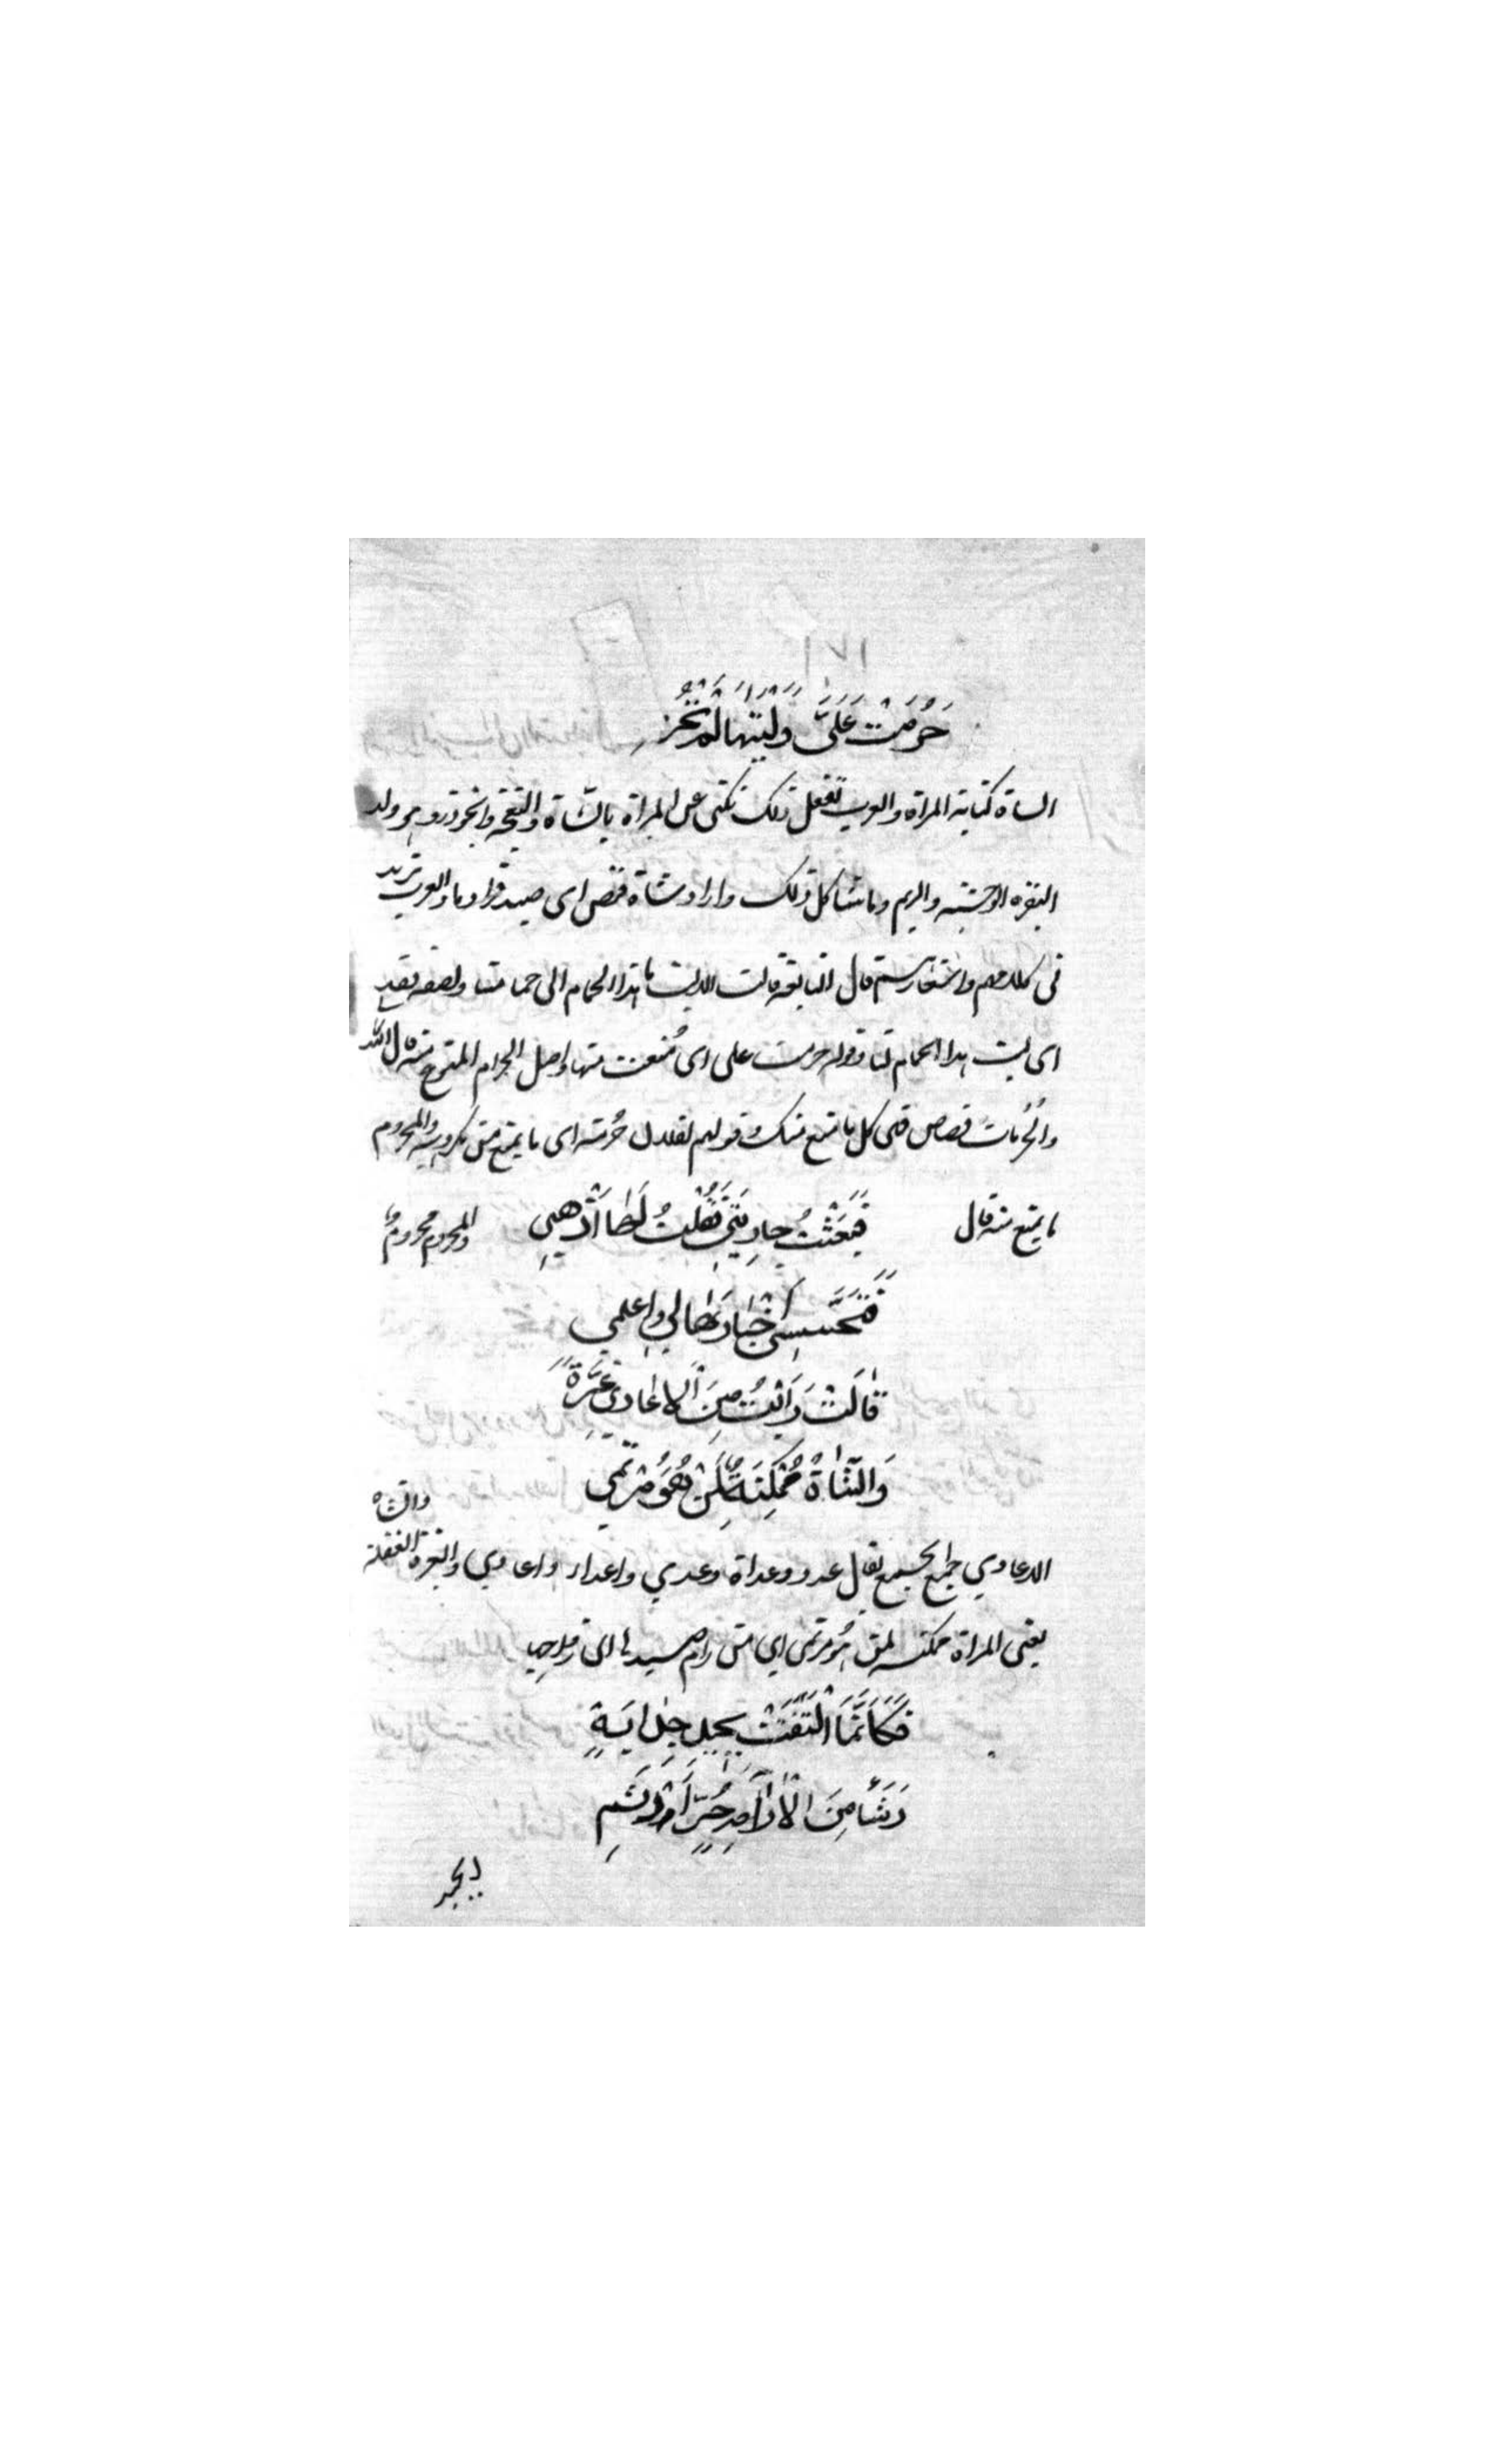 ١٧١
حَرُمَتْ عَلَيَّ وَلَيْتَهَا لَمْ تَحْرُمِ
الشاة كناية المراة والعرب تفعل ذلك تكنى عن المراة بالشاة والنعجة والجوذر وهو ولد
البقرة الوحشية والريم وما شاكل ذلك واراد شاة قنص اى صيد وما والعرب تزيد
فى كلامهم واشعارهم قال النابغة قالت الا ليت ما هذا الحمام الى حمامتنا ونصفه فقد
اى ليت هذا الحمام لنا وقوله حرمت على اى مُنعت منها واصل الحرام الممنوع منه قال الله
والحُرُمات قصاص فهى كل ما منع منك وقولهم لفلان حُرمة اى ما يمنع من مكروهه والمحروم
ما يمنع منه قال
والمحروم محروم ما
فَبَعَثْتُ جارِيَتي فَقُلْتُ لَهَا اذْهَبِي
فَتَحَسَّسِي أَخْبَارَهَا لِي وَاعْلَمِي
قَالَتْ رَأَيْتُ مِنَ الْأَعَادِي غِرَّةً
وَالشَّاةُ مُمْكِنَةٌ لِمَنْ هُوَ مُرْتَمِي
الاعادي جمع الجمع يقال عدو وعداة وعدي واعداء واعادي والغرة الغفلة
والشاة
يعنى المراة ممكنة لمن هُو مرتمى اي من رام صيدها
فَكَأَنَّمَا الْتَفَتَتْ بِجِيدِ جِدَايَةٍ
رَشَأٍ مِنَ الْأَرْآمِ حُرٍّ أَرْثَمِ
الجيد